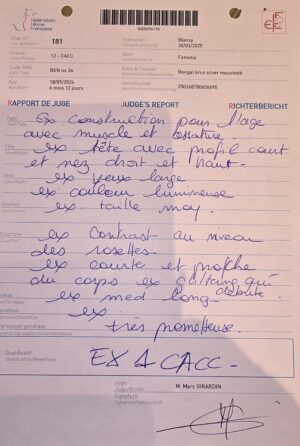 Fédération
Féline
Française
0000096190
Chat n° 181
Exposition Blanzy
30/03/2025
Classe 12 - CACC
Sexe Femelle
Code EMS BEN ns 24
Race & Couleur Bengal brun silver moucheté
Né le 18/09/2024
6 mois 12 jours
Identification 250268780650690
RAPPORT DE JUGE JUDGE'S REPORT RICHTERBERICHT
Type
Ex construction pour l'age
avec muscle et ossature.
Tête
ex tête avec profil court
et nez droit et haut.
Yeux
ex yeux large
ex couleur lumineuse
Oreilles
ex taille moy.
Fourrure
ex contrast au niveau
des rosettes.
ex courte et proche
du corps ex
débute.
ex med long.
Condition
ex.
très prometteuse.
Qualificatif
EX 1 CACC -
Juge M. Marc GIRARDIN
Signature